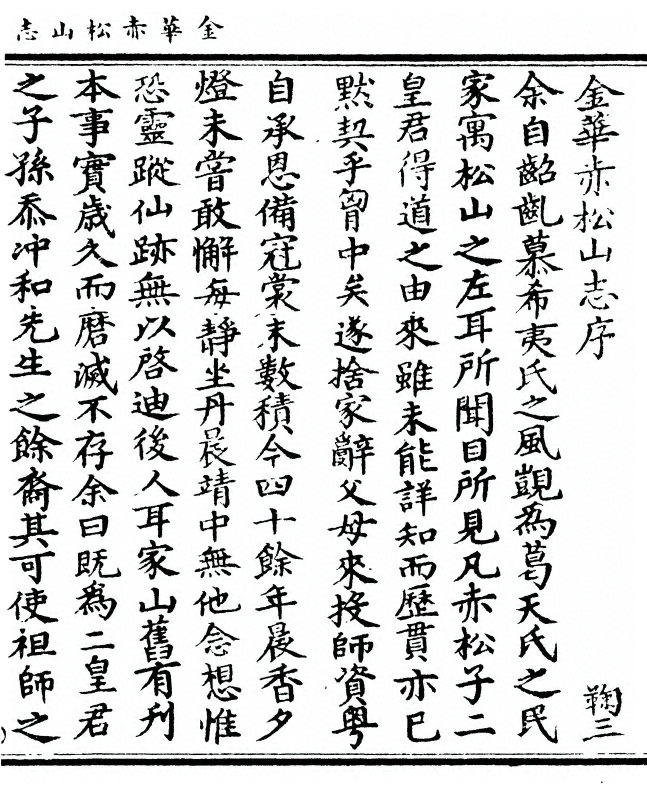 金華赤松山志
金華赤松山志序
鞠三
余自齠齔慕希夷氏之風覬為葛天氏之民
家寓松山之左耳所聞目所見凡赤松子二
皇君得道之由來雖未能詳知而歷貫亦已
黙契乎胷中矣遂捨家辭父母來投師資粤
自承恩備冠裳末數積今四十餘年晨香夕
燈未嘗敢懈每靜坐丹扆靖中無他念想惟
恐靈蹤仙跡無以啓迪後人耳家山舊有刋
本事實歲久而磨滅不存余曰既為二皇君
之子孫忝冲和先生之餘裔其可使祖師之